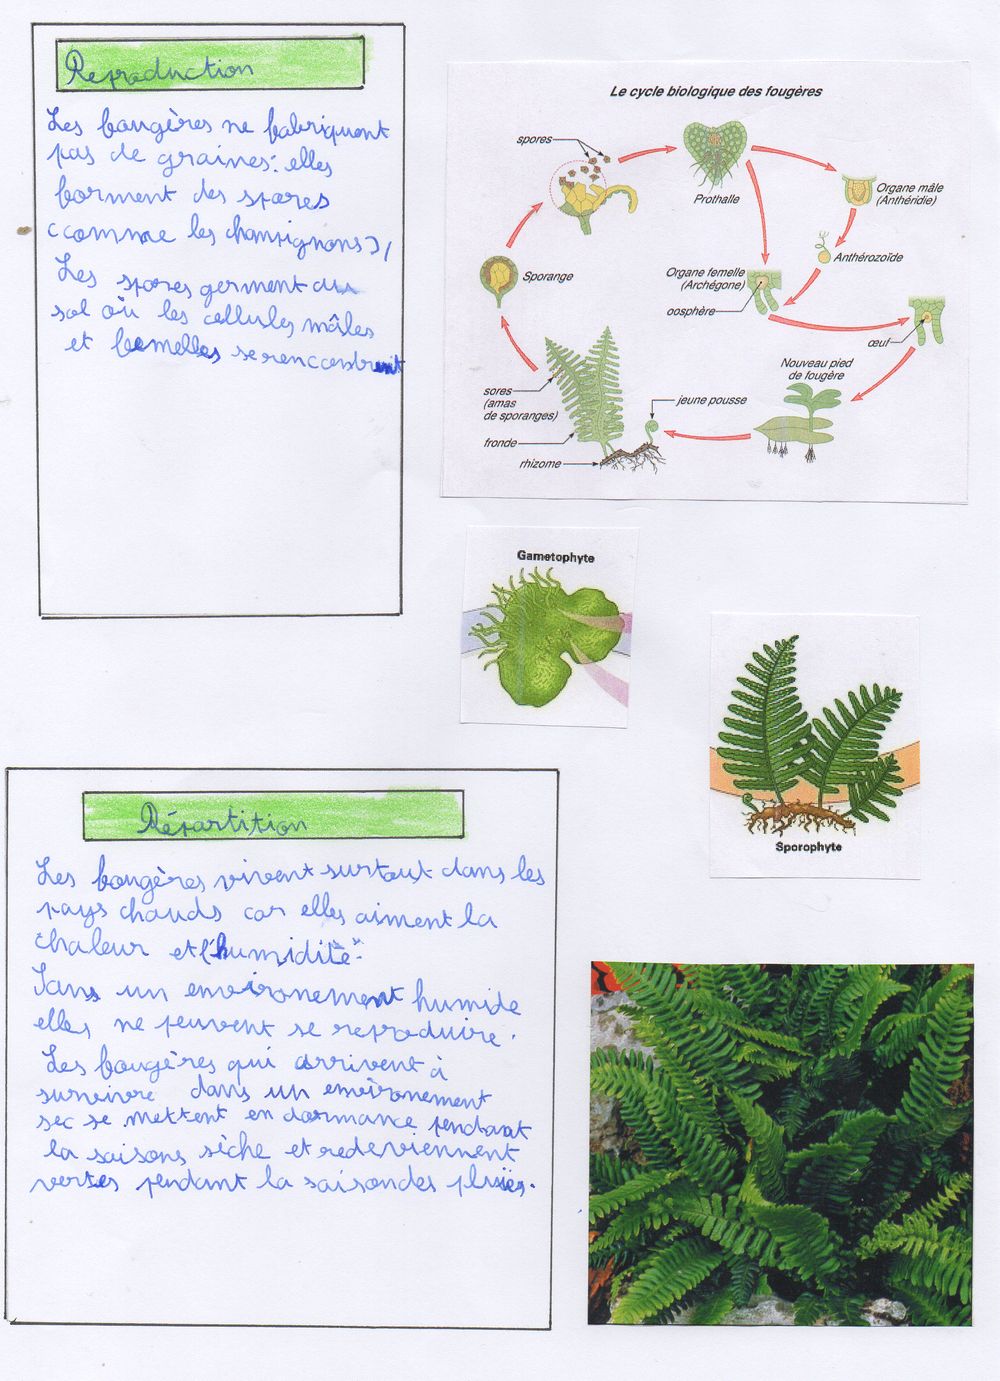 Reproduction
Les fougères ne fabriquent
pas de graines : elles
forment des spores
(comme les champignons),
Les spores germent au
sol où les cellules mâles
et femelles se rencontrent
Le cycle biologique des fougères
spores
Prothalle
Organe mâle
(Anthéridie)
Anthérozoïde
Organe femelle
(Archégone)
oosphère
Sporange
œuf
Nouveau pied
de fougère
sores
(amas
de sporanges)
jeune pousse
fronde
rhizome
Gametophyte
Sporophyte
Répartition
Les fougères vivent surtout dans les
pays chauds car elles aiment la
chaleur et l'humidité.
Sans un environement humide
elles ne peuvent se reproduire.
Les fougères qui arrivent à
survivre dans un environement
sec se mettent en dormance pendant
la saisons sèche et redeviennent
vertes pendant la saison des pluies.